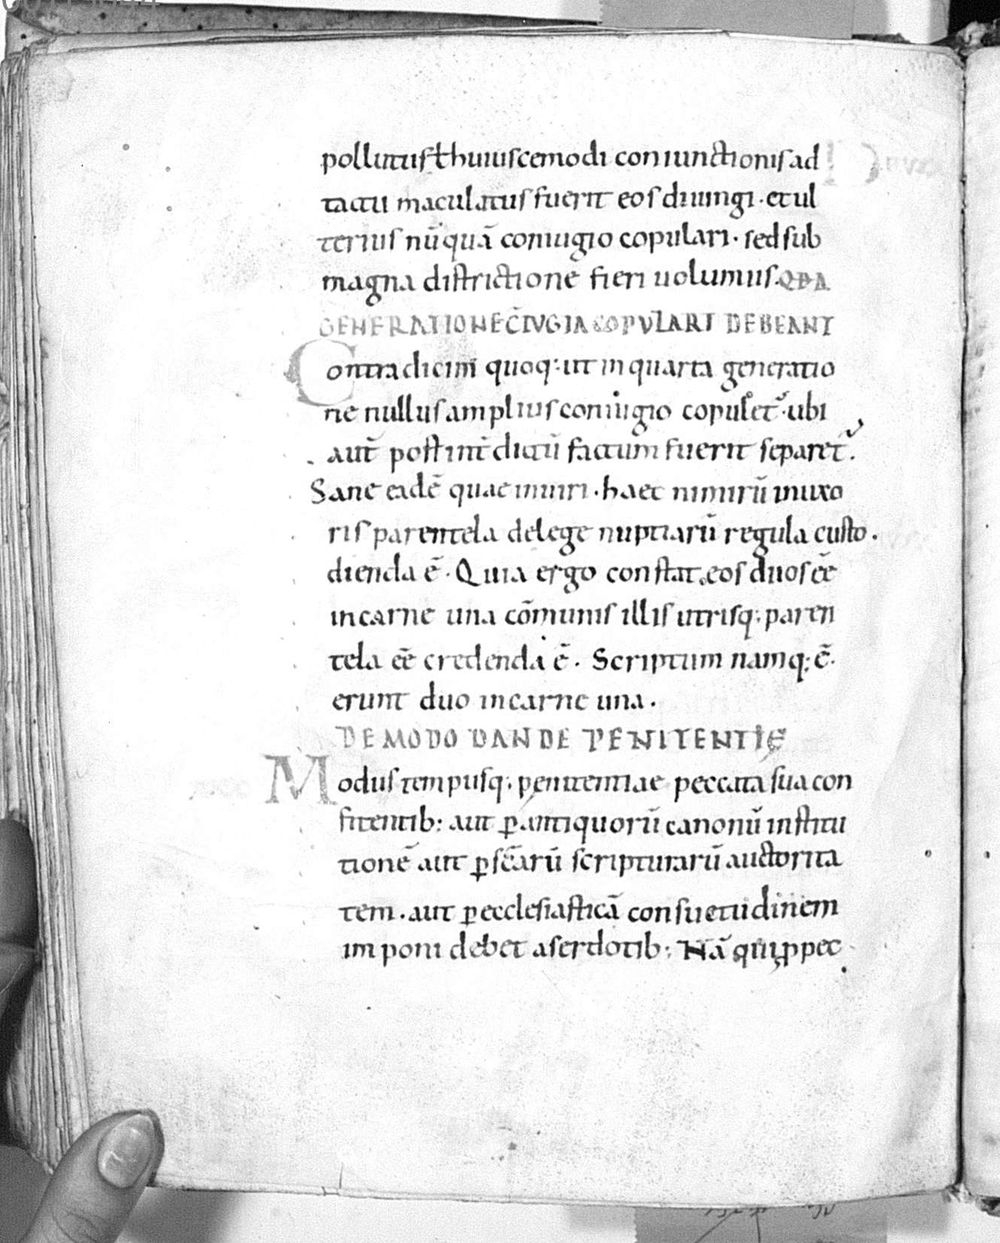 pollutus ł huiuscemodi coniunctionis ad
tactu maculatus fuerit eos diiungi · et ul
terius nūquā coniugio copulari · sed sub
magna districtione fieri uolumus · QDA
GENERATIONE CIVGIA COPVLARI DEBEANT
Contradicim quoq: ut in quarta generatio
ne nullus amplius coniugio copulet᷑ · ubi
aut̄ post int̄dictū factum fuerit separet᷑ .
Sane eadē quae in uiri · haec nimirū in uxo
ris parentela de lege nuptiarū regula custo
dienda ē · Quia ergo constat eos duos eē
in carne una cōmunis illis utrisq; paren
tela eē credenda ē · Scriptum namq; ē ·
erunt duo in carne una ·
DE MODO DANDE PENITENTIĘ
Modus tempusq; penitentiae peccata sua con
fitentib: aut ꝑ antiquorū canonū institu
tionē aut ꝑ scārū scripturarū auctorita
tem · aut ꝑ ecclesiasticā consuetudinem
imponi debet a serdotib: Nā qui ꝓpec